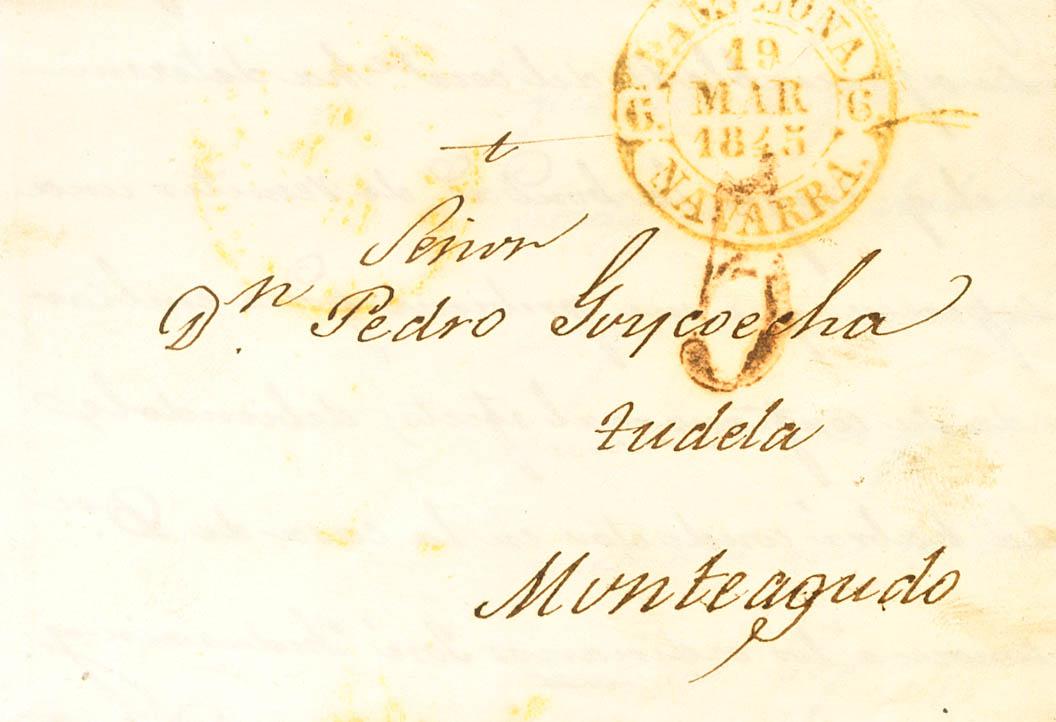 PAMPLONA
19
MAR
1845
6 6
NAVARRA.
5
Señor
Dn. Pedro Goycoecha
tudela
Monteagudo